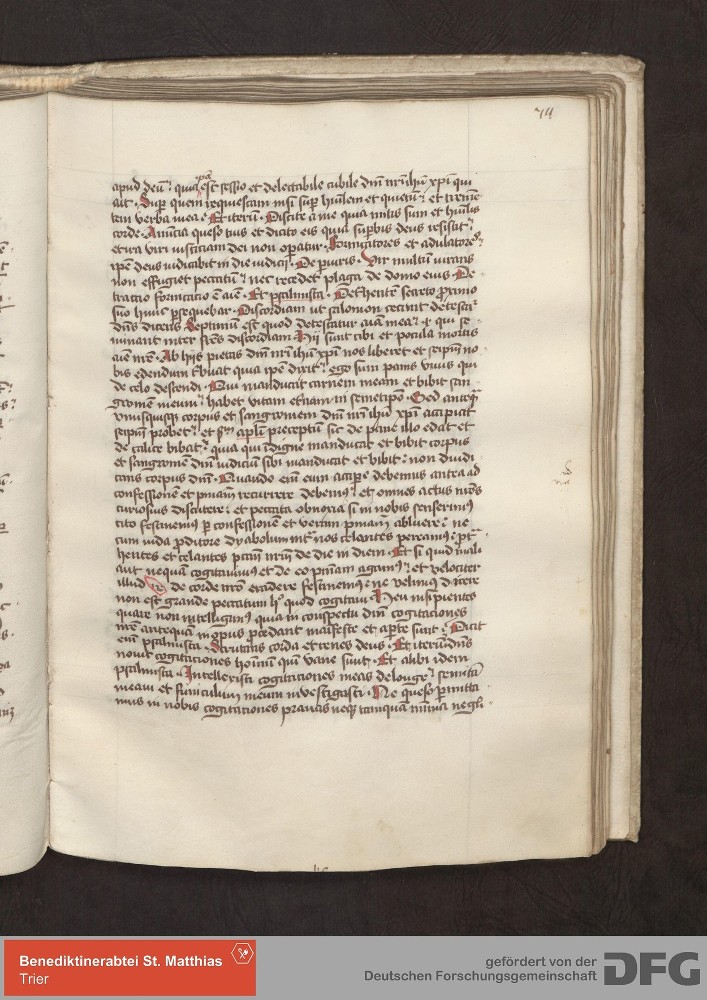 74
apud deū quia ip̄a est sessio et delectabile cubile dn̄i nr̄i ihū xp̄i qui
ait Sup quem requiescam nisi sup hūilem et quietū et tremē
tem verba mea Et iterū Discite a me quia mitis sum et hūilis
corde Anūcia queso tuis et dicito eis quia supbis deus resistit
et ira viri iusticiam dei non opatur Fornicatores et adulatores
ip̄e deus iudicabit in die iudicij De piuris Vir multū iurans
non effugiet peccatū nec recedet plaga de domo eius De
tractio fornicatio ē aīe Et psalmista Detrhentē secreto proximo
suo hunc psequebar Discordiam ut salomon cecinit detesta
dn̄s dicens Septimū est quod detestatur aīa mea qui se
minant inter frēs discordiam Hij sunt cibi et pocula mortis
aīe nrē Ab hijs pietas dn̄i nr̄i ihū xp̄i nos liberet et seip̄m no
bis edendum tbuat quia ip̄e dixit ego sum panis viuus qui
de celo descendi Qui manducat carnem meam et bibit san
gwinem meum habet vitam etnam in semetipo Sed anteq̄
vnusquisq; corpus et sangwinem dn̄i nr̄i ihū xp̄i accipiat
seip̄m probet et scd̄m apl̄i preceptū sic de pane illo edat et
de calice bibat quia qui indigne manducat et bibit corpus
et sangwinē dn̄i iudiciū sibi manducat et bibit non diiudi
cans corpus dn̄i Quando em̄ eum accipe debemus antea ad
confessionē et pn̄iam recurrere debem9 et omnes actus nrōs
curiosius discutere et peccata obnoxia si in nobis senserim9
cito festinem9 p confessionē et veram pn̄iam abluere ne
cum iuda pditore dyabolum int nos celantes peream9
hentes et celantes pctm̄ nrm̄ de die in diem Et si quid mali
aut nequam cogitauim9 et de eo pn̄iam agam9 et velociter
illud de corde nrō eradere festinem9 ne velim9 dicere
non est grande peccatum hoc quod cogitaui Heu insipientes
quare non intelligim9 quia in conspectu dn̄i cogitaciones
nrē antequā in opus pcedant maifeste et apte sunt Dicit
em̄ psalmista Scrutans corda et renes deus Et iterū dn̄s
nouit cogitaciones hoīnū qm̄ vane sunt Et alibi idem
psalmista Intellexisti cogitaciones meas de longe semitā
meam et funiculum meum inuestigasti Ne queso pmitta
mus in nobis cogitaciones prauas neq; tamquā minia negli
Benediktinerabtei St. Matthias
Trier
gefördert von der
Deutschen Forschungsgemeinschaft
DFG